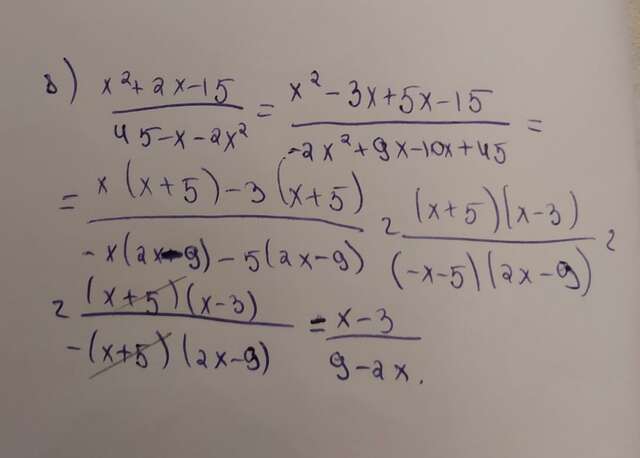 в) (x²+2x-15)/(45-x-2x²) = (x²-3x+5x-15)/(-2x²+9x-10x+45) =
= (x(x+5)-3(x+5))/(-x(2x-9)-5(2x-9)) = ((x+5)(x-3))/((-x-5)(2x-9)) =
= ((x+5)(x-3))/(-(x+5)(2x-9)) = (x-3)/(9-2x).